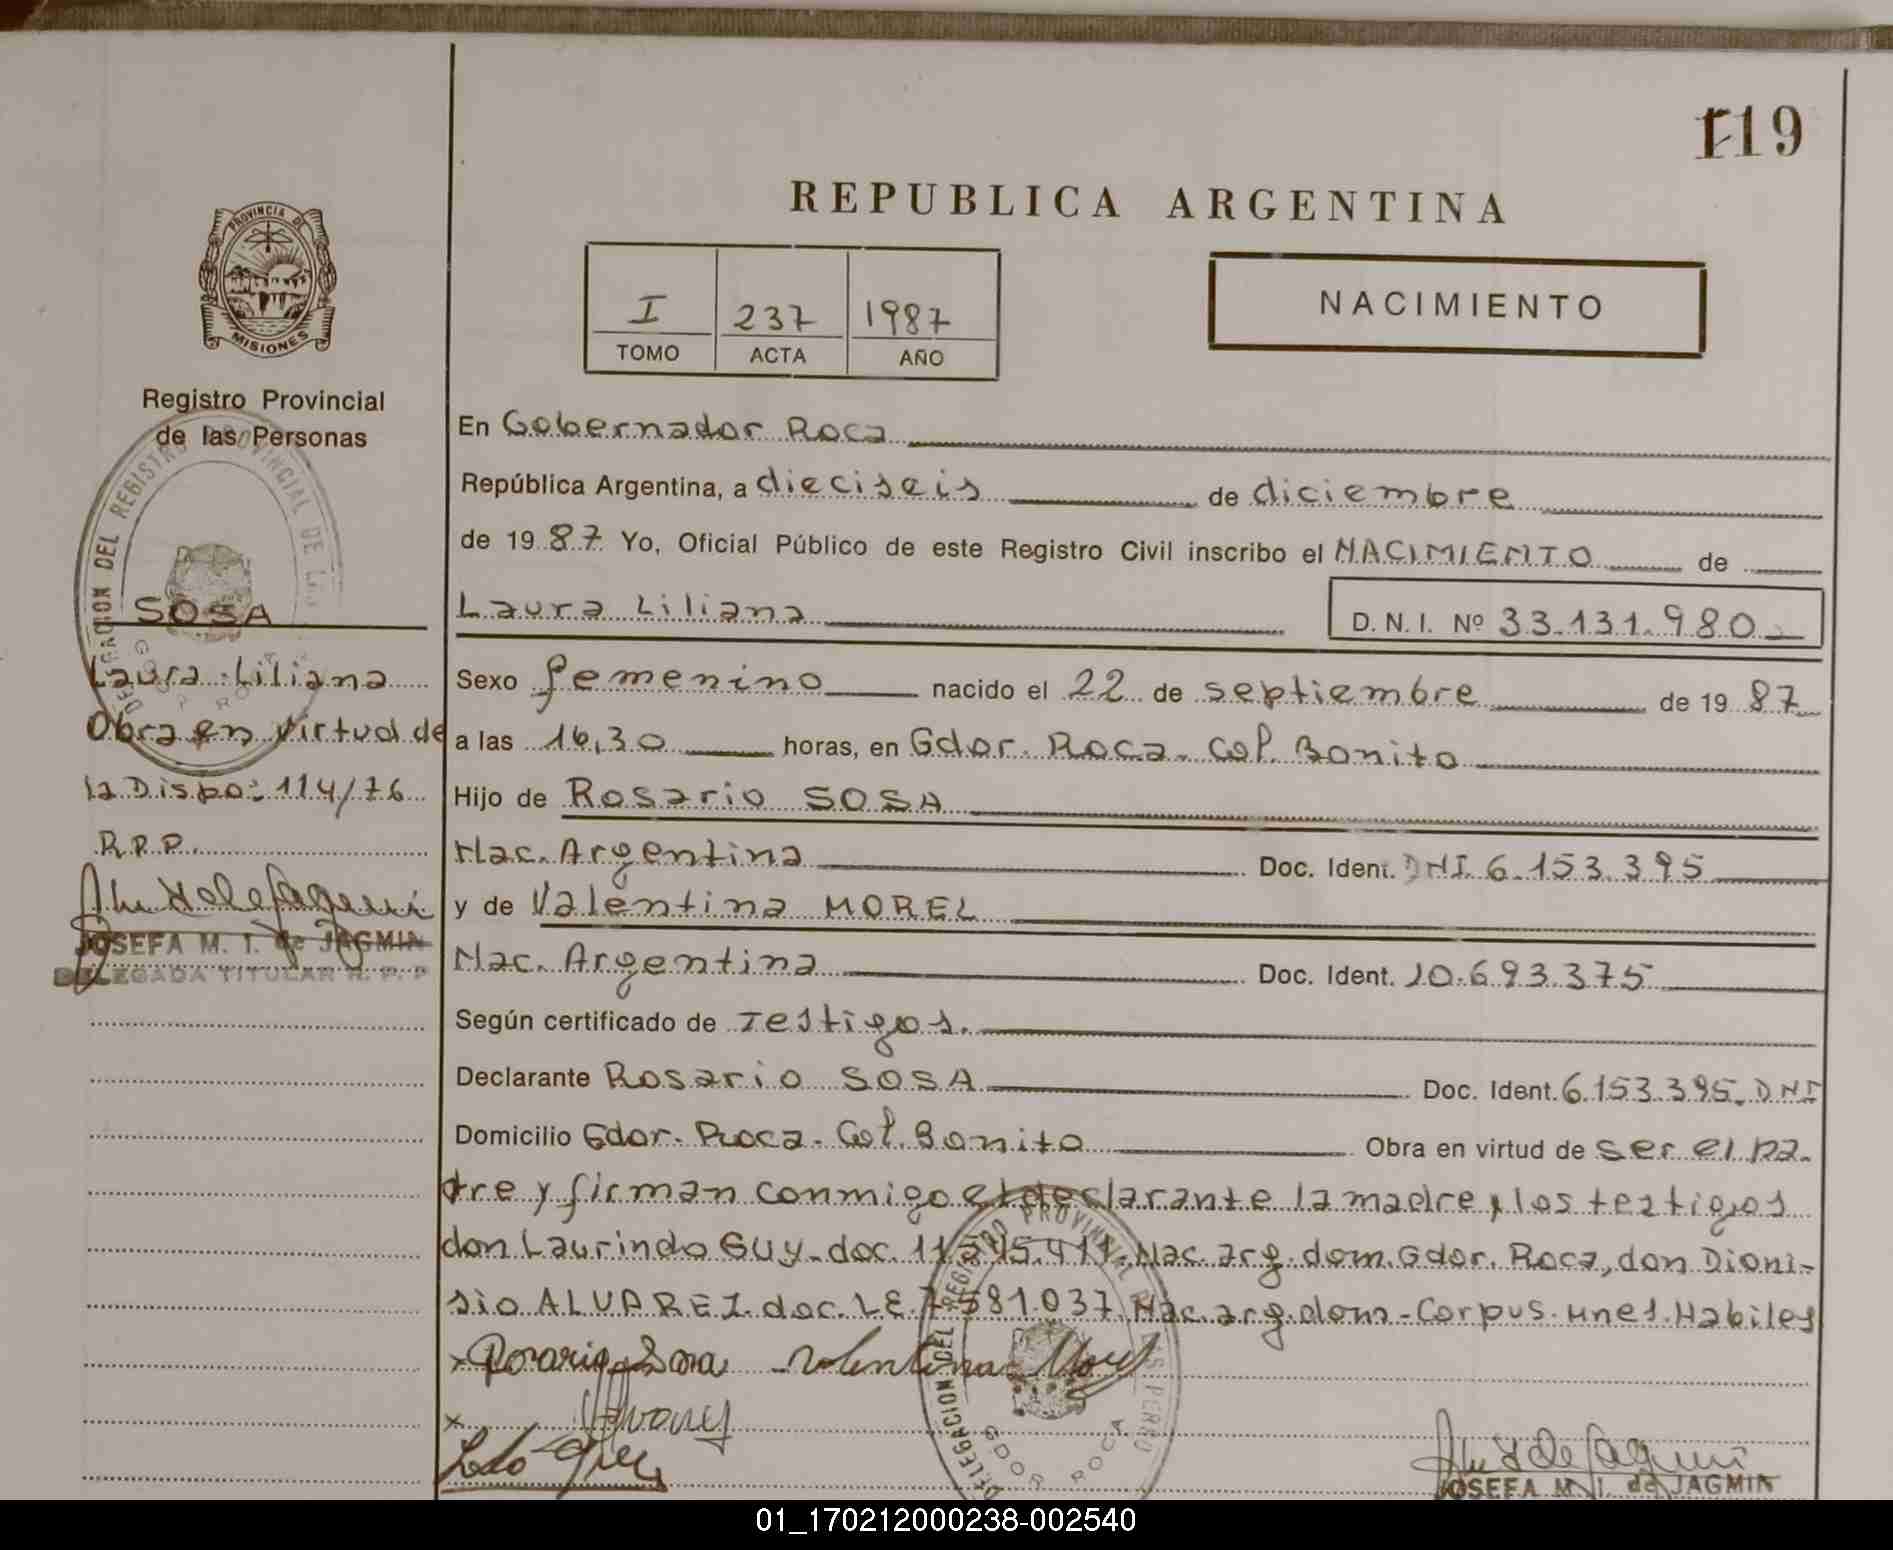 119
REPUBLICA ARGENTINA
PROVINCIA DE
MISIONES
I 237 1987
TOMO ACTA AÑO
NACIMIENTO
Registro Provincial
de las Personas
SOSA
Laura Liliana
Obra en virtud de
la Dispo: 114/76
R.P.P.
JOSEFA M. I. de JAGMIN
DELEGADA TITULAR R. P. P
En Gobernador Roca
República Argentina, a dieciseis de diciembre
de 19 87 Yo, Oficial Público de este Registro Civil inscribo el NACIMIENTO de
Laura Liliana D. N. I. Nº 33.131.980
Sexo femenino nacido el 22 de septiembre de 19 87
a las 16,30 horas, en Gdor. Roca - Col. Bonito
Hijo de Rosario SOSA
Nac. Argentina Doc. Ident. DNI 6.153.395
y de Valentina MOREL
Nac. Argentina Doc. Ident. 10.693.375
Según certificado de Testigos.
Declarante Rosario SOSA Doc. Ident. 6.153.395. DNI
Domicilio Gdor. Roca - Col. Bonito Obra en virtud de ser el pa-
dre y firman conmigo el declarante la madre y los testigos
don Laurindo GUY - doc. Nac. arg. dom. Gdor. Roca, don Dioni-
sio ALVAREZ. doc. L.E. 7.581.037 Nac. arg. dom - Corpus. Habiles
Rosario Sosa Valentina Morel
DELEGACION DEL REGISTRO PROVINCIAL DE LAS PERSO
GDOR ROCA
JOSEFA M. I. de JAGMIN
01_170212000238-002540